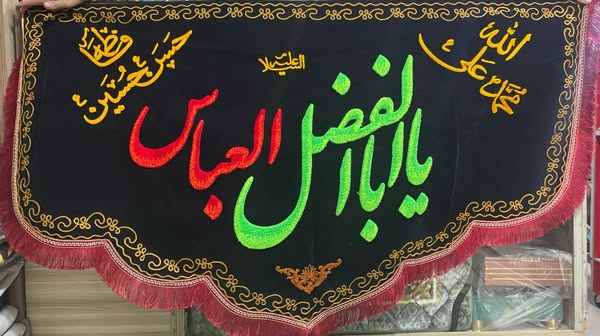 الله
محمد علی
علیه السلام
فاطمه
حسن حسین
یا ابا الفضل العباس